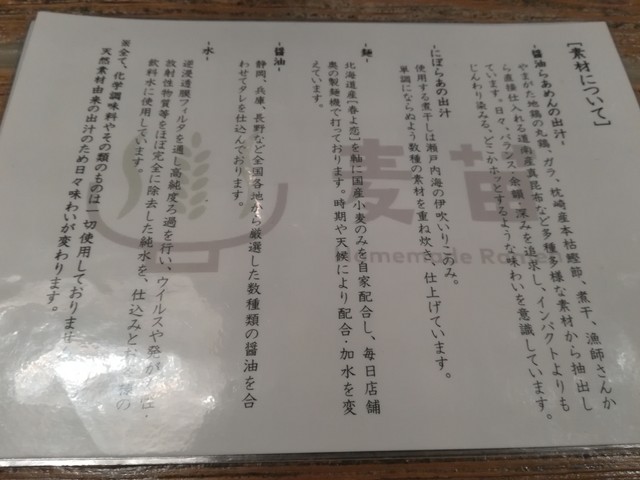 【素材について】
-醤油らあめんの出汁-
やまがた地鶏の丸鶏、ガラ、枕崎産本枯鰹節、煮干、漁師さんか
ら直接仕入れる道南産真昆布など多種多様な素材から抽出し
ています。日々、バランス・余韻・深みを追求し、インパクトよりも
じんわり染みる、どこかホッとするような味わいを意識しています。
-にぼらあの出汁-
使用する煮干しは瀬戸内海の伊吹いりこのみ。
単調にならぬよう数種の素材を重ね炊き、仕上げています。
-麺-
北海道産【春よ恋】を軸に国産小麦のみを自家配合し、毎日店舗
奥の製麺機で打っております。時期や天候により配合・加水を変
えています。
-醤油-
静岡、兵庫、長野など全国各地から厳選した数種類の醤油を合
わせてタレを仕込んでおります。
-水-
逆浸透膜フィルタを通し高純度ろ過を行い、ウイルスや発がん性・
放射性物質等をほぼ完全に除去した純水を、仕込みとお客様の
飲料水に使用しています。
※全て、化学調味料やその類のものは一切使用しておりません
天然素材由来の出汁のため日々味わいが変わります。
麦苗
Homemade Ramen